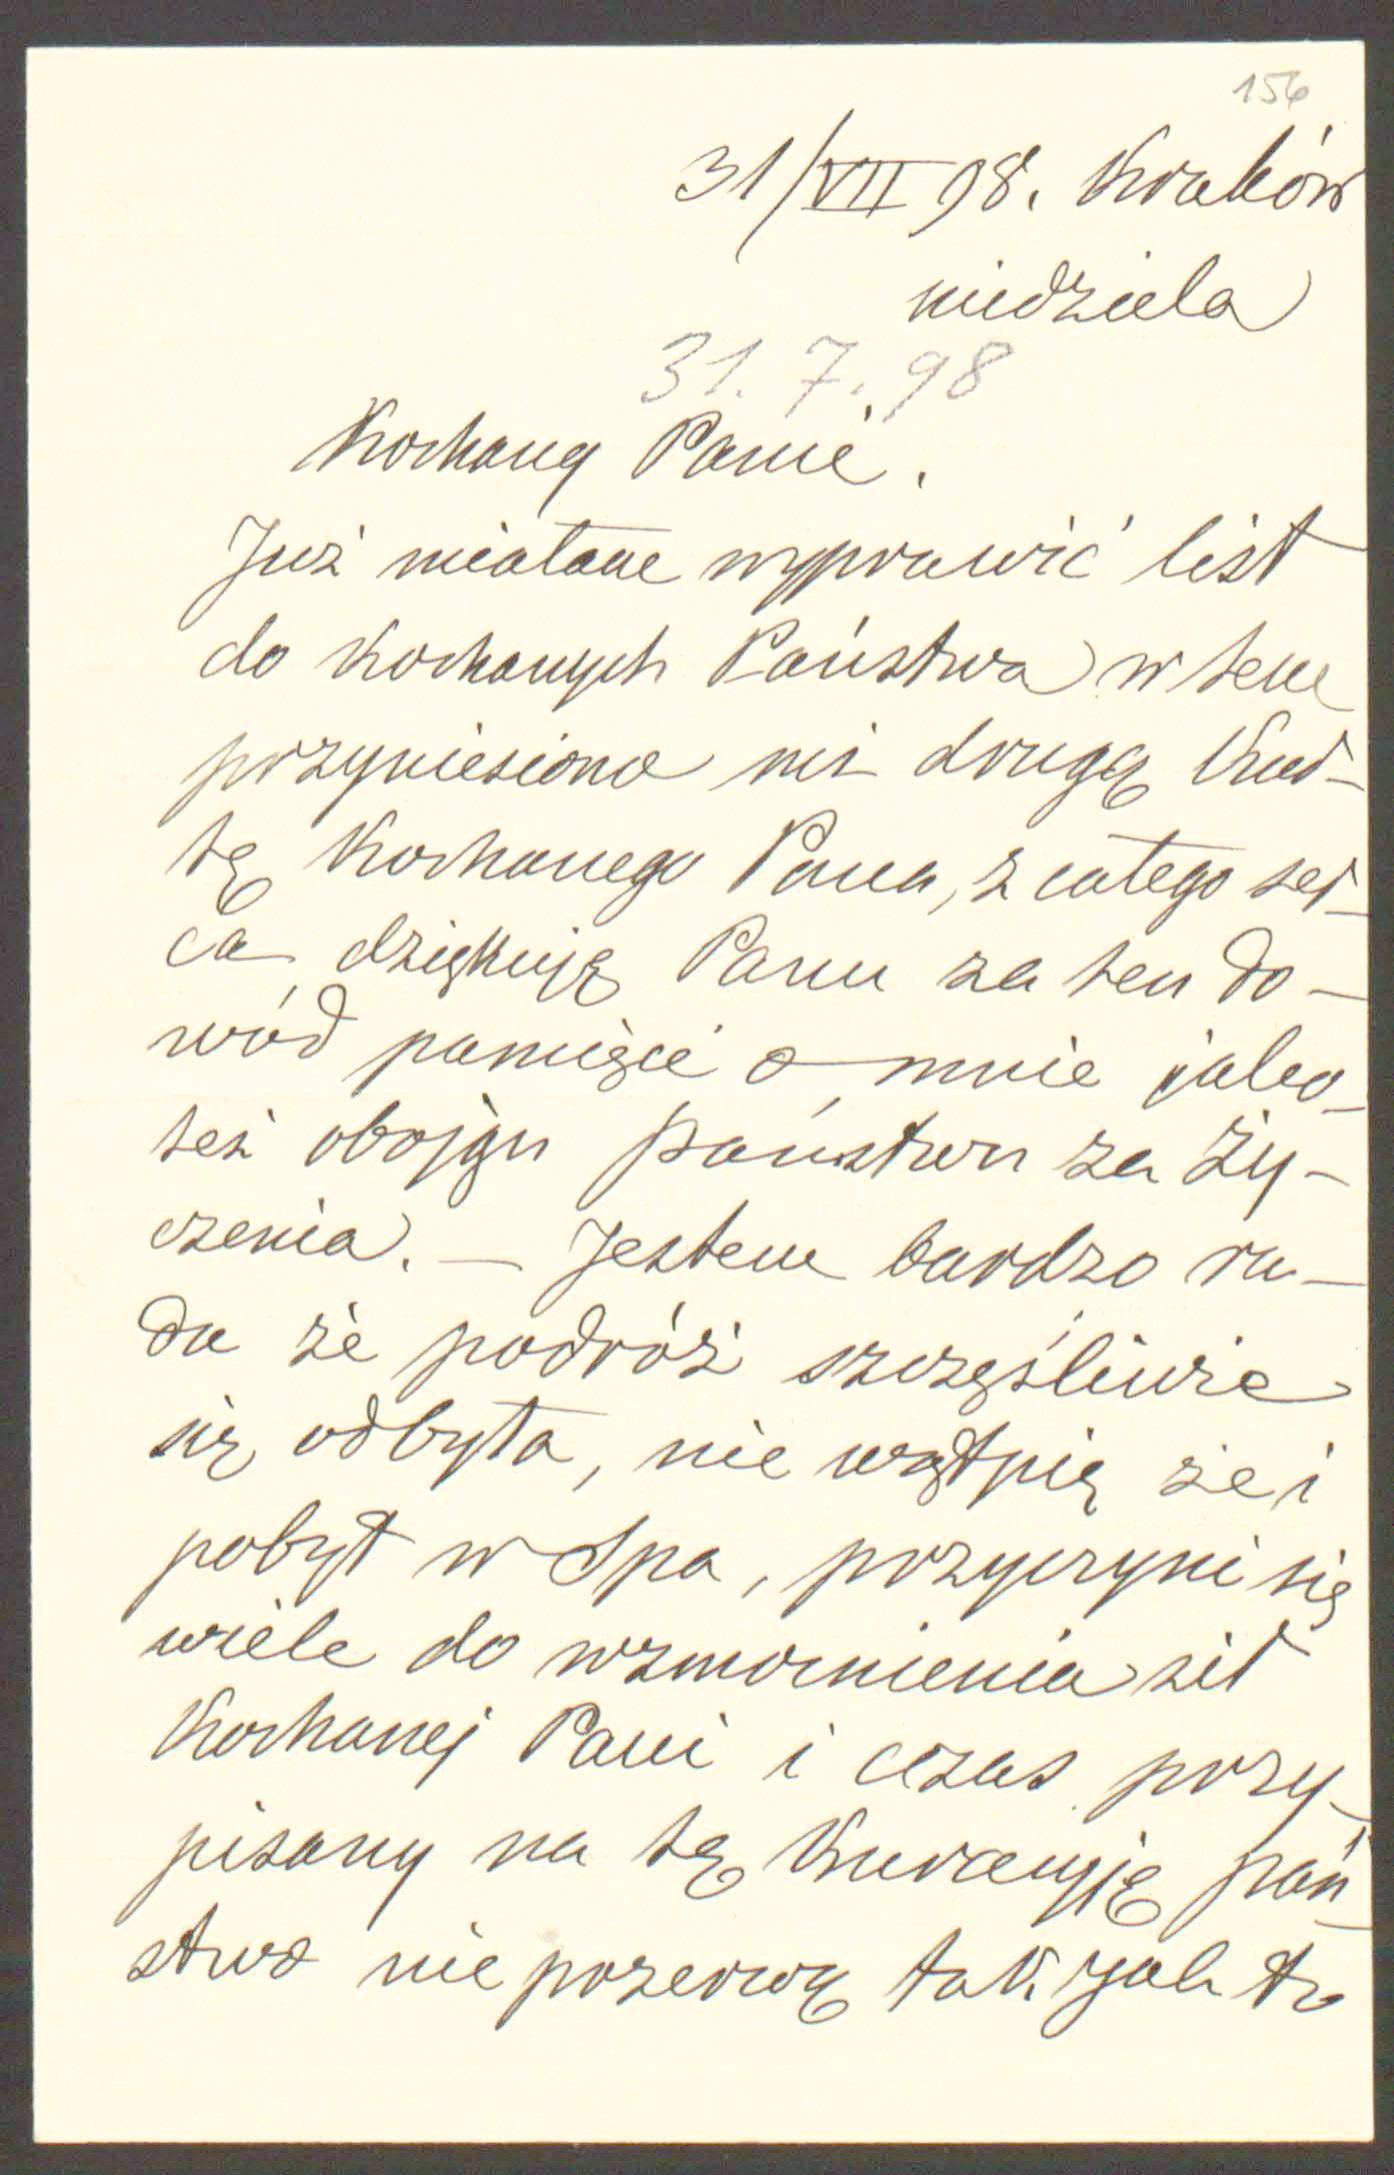 156
31/VII 98. Kraków
niedziela
31. 7. 98
Kochany Panie.
Już miałam wyprawić list
do Kochanych Państwa w tem
przyniesiono mi drugą Kar-
tę Kochanego Pana, z całego ser-
ca dziękuję Panu za ten do-
wód pamięci o mnie jako-
też obojgu państwu za ży-
czenia. — Jestem bardzo ra-
da że podróż szczęśliwie
się odbyła, nie wątpię że i
pobyt w Spa, przyczyni się
wiele do wzmocnienia sił
Kochanej Pani i czas przy-
pisany na tę Kuracyję pań-
stwo nie przerwą tak jak to